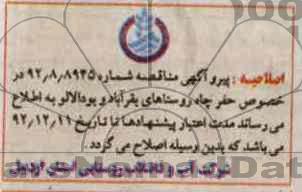 اصلاحیه : پیرو آگهی مناقصه شماره ۹۲٫۸٫۸۹۳۵ در
خصوص حفر چاه روستاهای بفرآباد و پودالالو به اطلاع
می رساند مدت اعتبار پیشنهادها تا تاریخ ۹۲٫۱۲٫۱۱
می باشد که بدین وسیله اصلاح می گردد .
شرکت آب و فاضلاب روستایی استان اردبیل